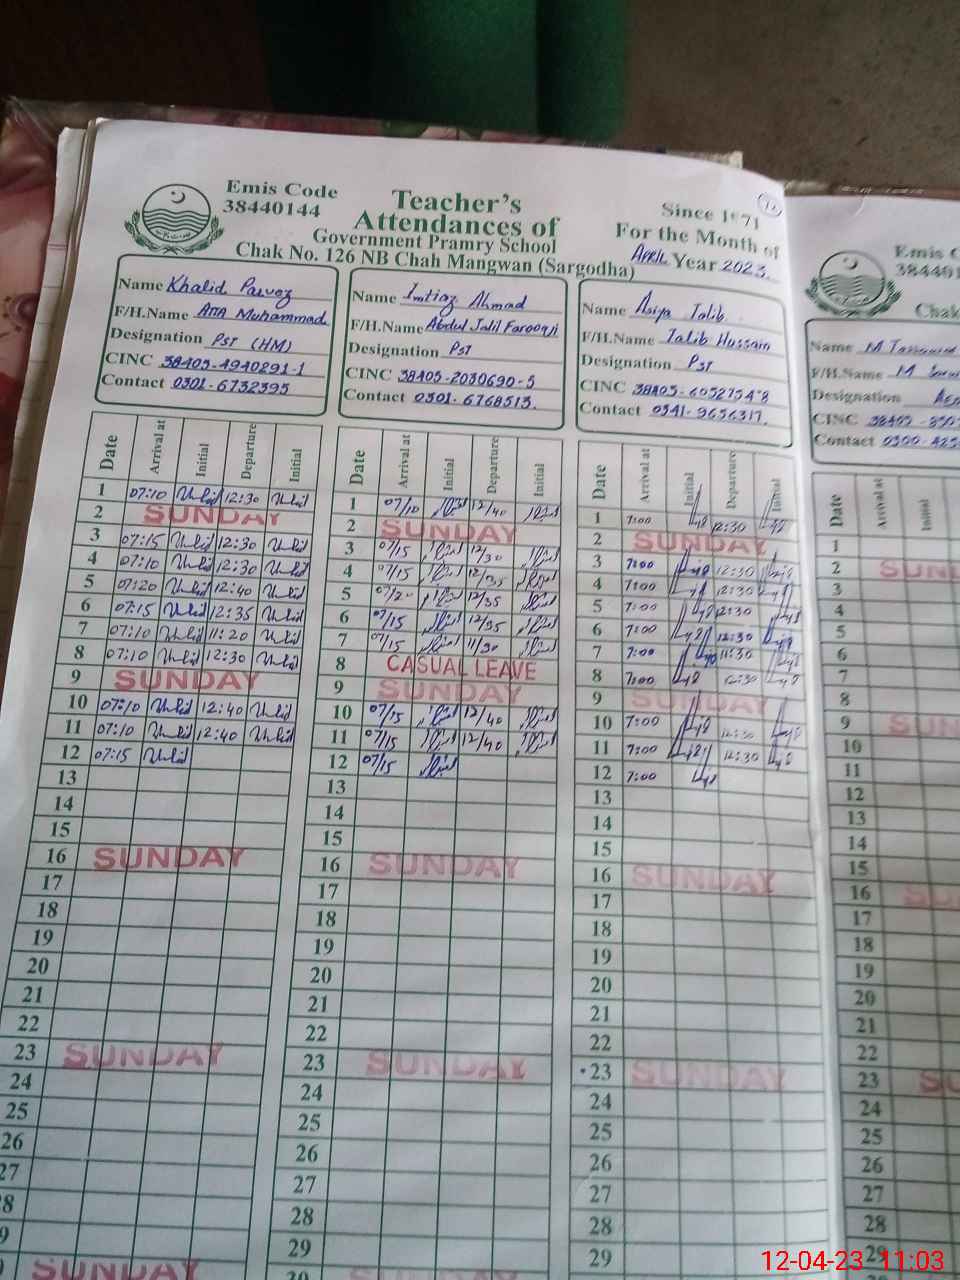 Emis Code
38440144
Teacher's
Attendances of
Government Pramry School
Chak No. 126 NB Chah Mangwan (Sargodha)
Since 1971
For the Month of
APRIL Year 2023.
Name Khalid Parvez
F/H.Name Atta Muhammad
Designation PST (HM)
CINC 38403-4940291-1
Contact 0301-6732395
Name Imtiaz Ahmad
F/H.Name Abdul Jalil Farooqji
Designation PST
CINC 38403-2030690-5
Contact 0301-6768513.
Name Asiya Talib
F/H.Name Talib Hussain
Designation PST
CINC 38403-6052754-8
Contact 0341-9656317.
Emis
Chak
Name M
F/H.Name M
Designation
CINC
Contact
Date Arrival at Initial Departure Initial
1 07:10 12:30
2 SUNDAY
3 07:15 12:30
4 07:10 12:30
5 07:20 12:40
6 07:15 12:35
7 07:10 11:20
8 07:10 12:30
9 SUNDAY
10 07:10 12:40
11 07:10 12:40
12 07:15
13
14
15
16 SUNDAY
17
18
19
20
21
22
23 SUNDAY
24
25
26
27
SUNDAY
Date Arrival at Initial Departure Initial
1 07/10 12/40
2 SUNDAY
3 07/15 12/30
4 07/15 12/35
5 07/20 12/35
6 07/15 12/35
7 07/15 11/30
8 CASUAL LEAVE
9 SUNDAY
10 07/15 12/40
11 07/15 12/40
12 07/15
13
14
15
16 SUNDAY
17
18
19
20
21
22
23 SUNDAY
24
25
26
27
28
29
30 SUNDAY
Date Arrival at Initial Departure Initial
1 7:00 12:30
2 SUNDAY
3 7:00 12:30
4 7:00 12:30
5 7:00 12:30
6 7:00 12:30
7 7:00 11:30
8 7:00 12:30
9 SUNDAY
10 7:00 12:30
11 7:00 12:30
12 7:00
13
14
15
16 SUNDAY
17
18
19
20
21
22
23 SUNDAY
24
25
26
27
28
29
Date Arrival at Initial
1
2
3
4
5
6
7
8
9
10
11
12
13
14
15
16
17
18
19
20
21
22
23
24
25
26
27
28
29
12-04-23 11:03